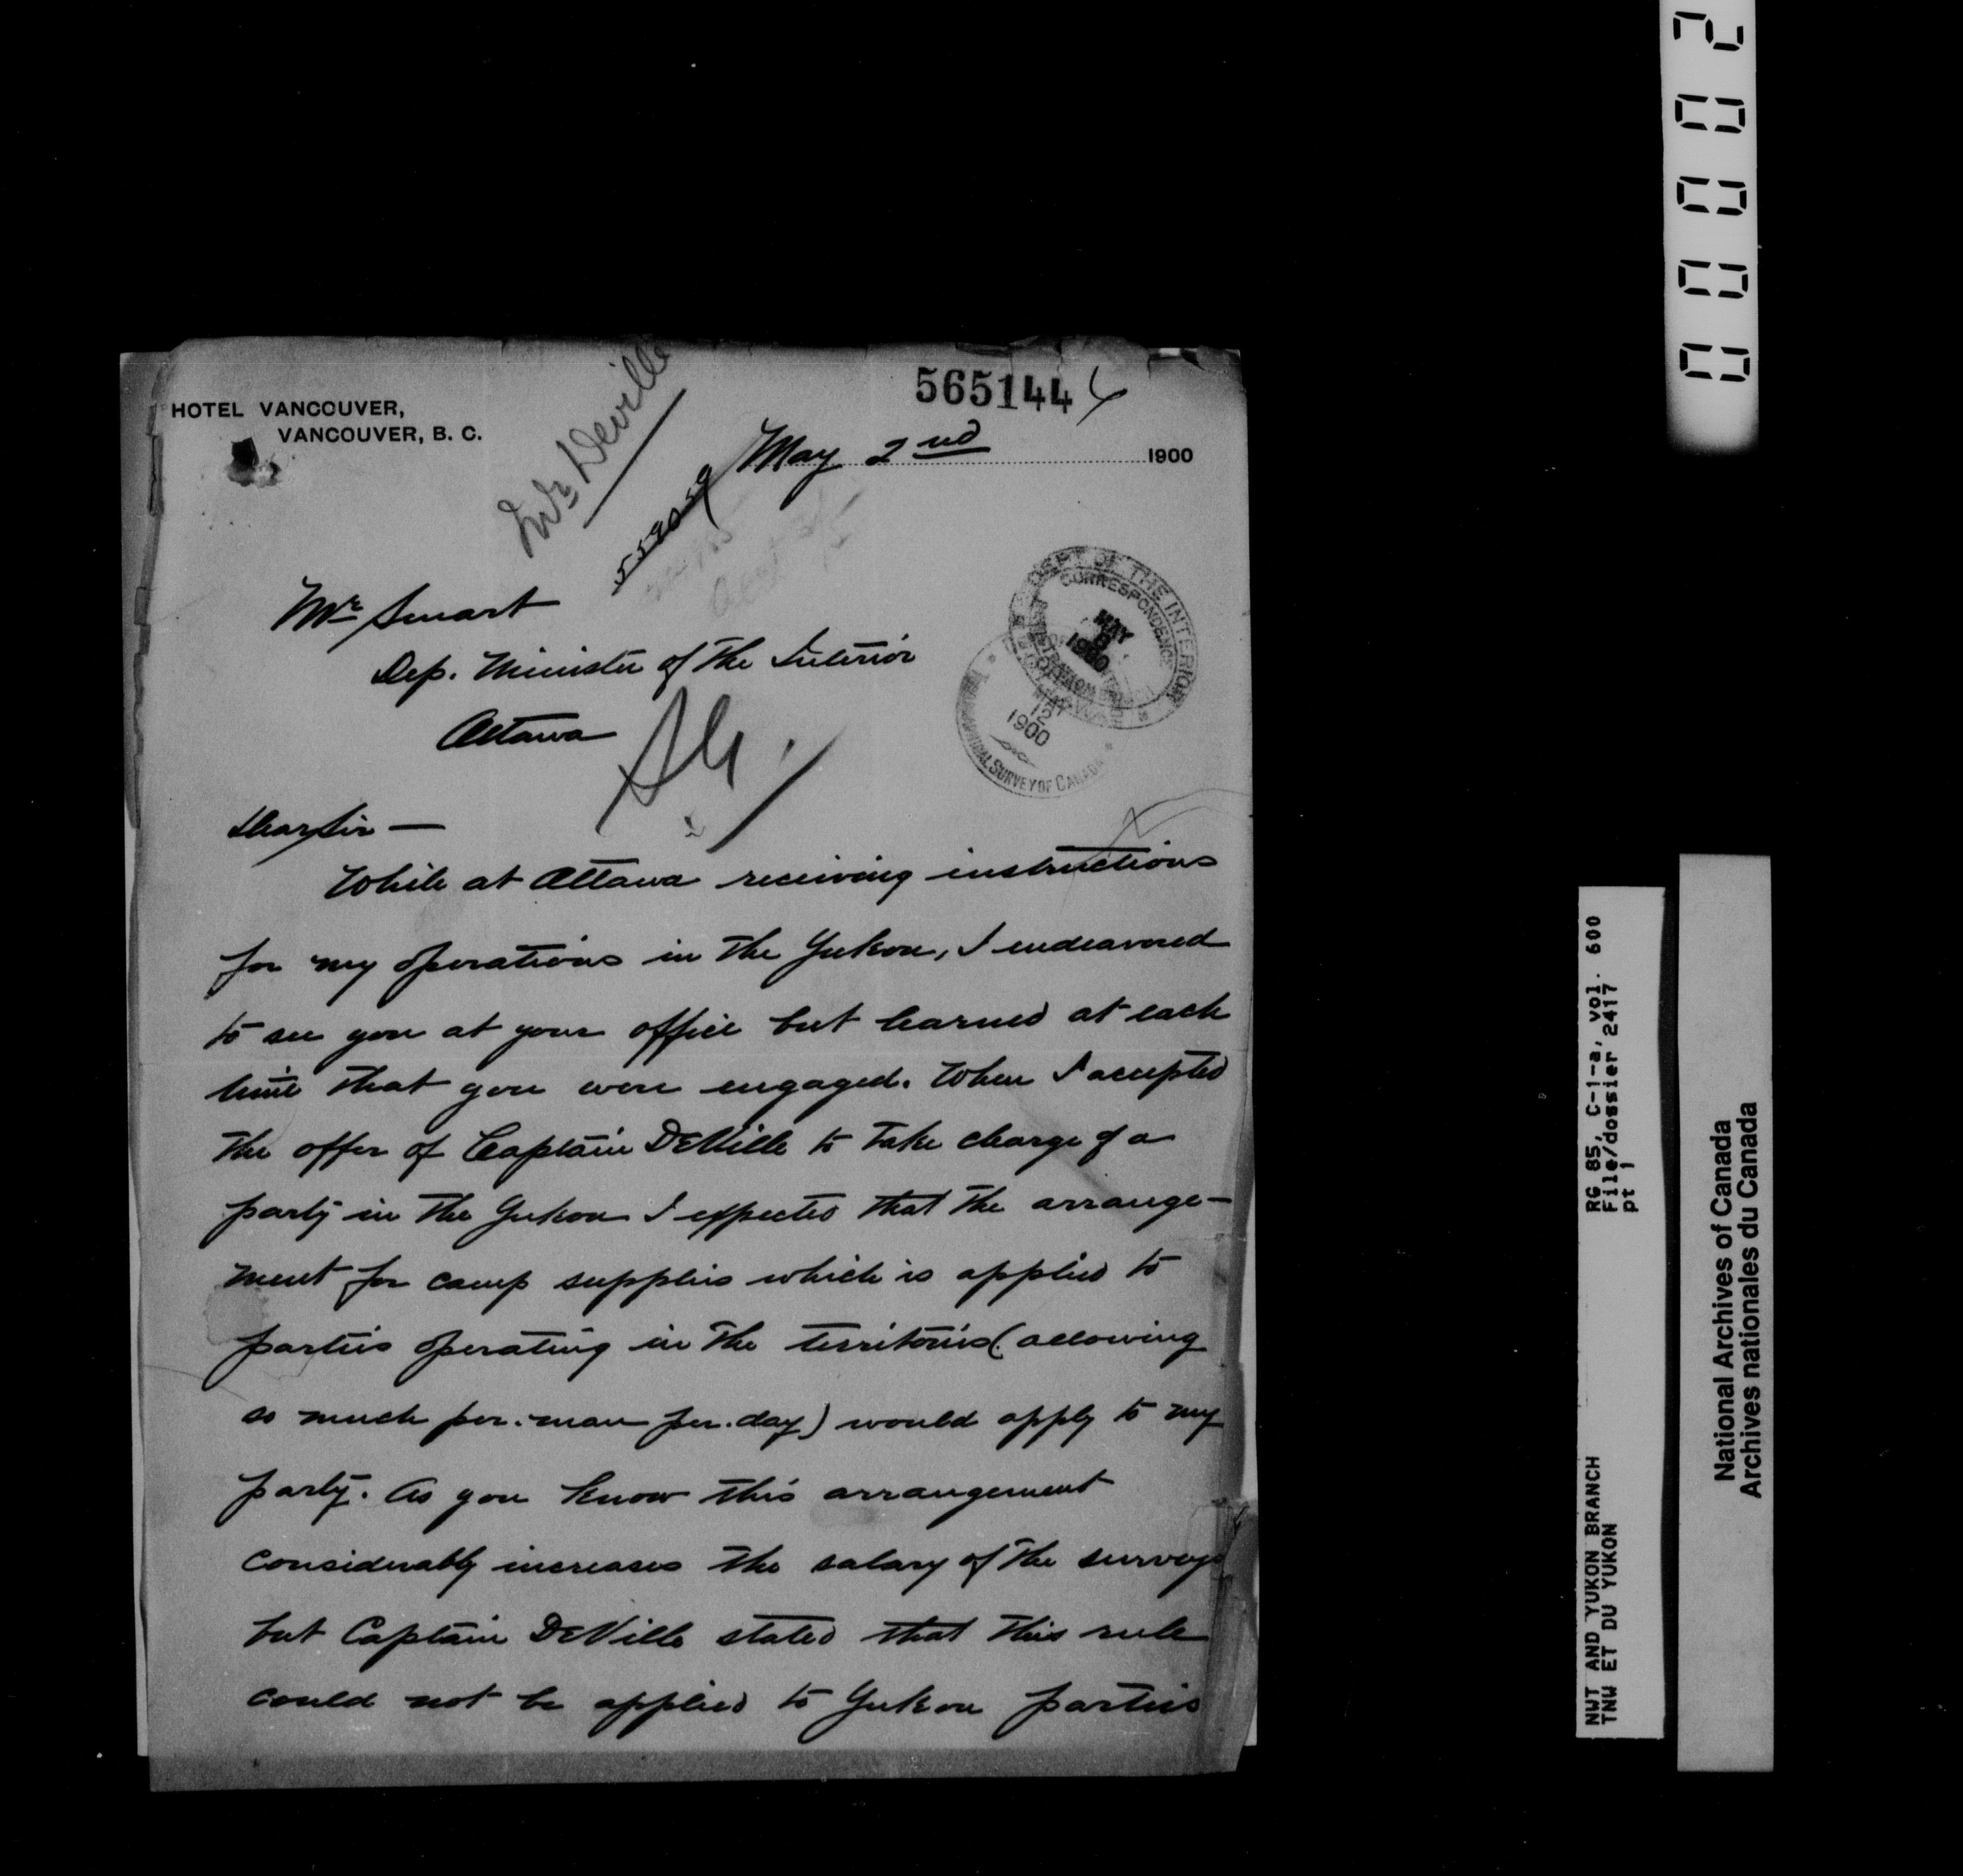 HOTEL VANCOUVER,
VANCOUVER, B. C.
565144
Mr Deville
May 2nd 1900
Mr Smart
Dep. Minister of the Interior
Ottawa
DEPT OF THE INTERIOR
CORRESPONDENCE
MAY
1900
MAY
12
1900
SURVEY OF CANADA
Dear Sir —
While at Ottawa receiving instructions
for my operations in the Yukon, I endeavored
to see you at your office but learned at each
time that you were engaged. When I accepted
the offer of Captain DeVille to take charge of a
party in the Yukon I expected that the arrange-
ment for camp supplies which is applied to
parties operating in the territories (allowing
so much per. man per. day) would apply to my
party. As you know this arrangement
considerably increases the salary of the survey
but Captain DeVille stated that this rule
could not be applied to Yukon parties
00002
RG 85, C-1-a, vol. 600
File/dossier 2417
pt 1
NWT AND YUKON BRANCH
TNW ET DU YUKON
National Archives of Canada
Archives nationales du Canada